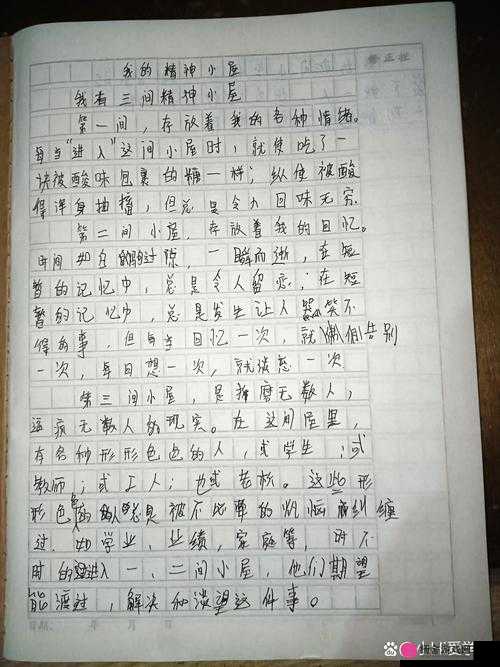 我的精神小屋
我有三间精神小屋
第一间，存放着我的各种情绪。
每当"进入"这间小屋时，就使吃了一
块被酸味包裹的糖一样；纵使被酸
得浑身抽搐，但总是令人回味无穷
第二间小屋，存放着我的回忆。
时间如白驹过隙，一瞬而逝，在短
暂的记忆中，总是令人留恋；在短
暂的记忆中，总是发生让人哭笑不
得的事，但每当回忆一次，就俩俩告别
一次，每日想一次，就
一次
第三间小屋，是折磨无数人，
无数人的现实。在这间屋里，
有各种形形色色的人，或学生；或
教师；或工人；也或老板。这些形
形色色的人总是被不此
的烦恼
纠缠
过，如学业，业绩，家庭等，时不
时的进入一、二间小屋，他们期望
能渡过，解决和淡望这件事。
日期： 年 月 日